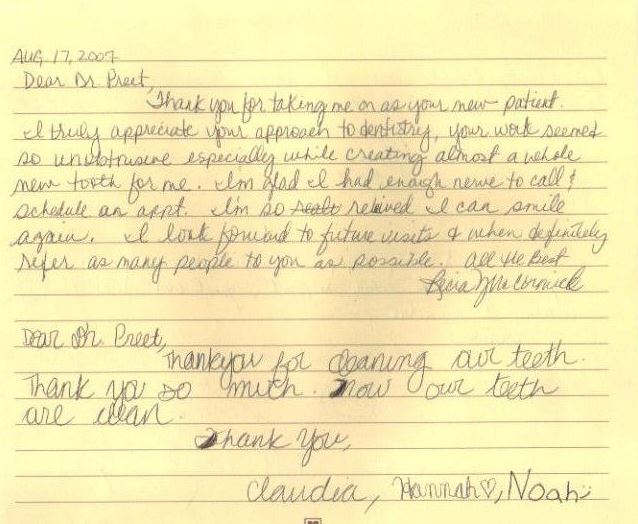 Aug 17, 2007
Dear Dr. Preet,
Thank you for taking me on as your new patient.
I truly appreciate your approach to dentistry, your work seemed
so unobtrusive especially while creating almost a whole
new tooth for me. I'm glad I had enough nerve to call &
schedule an appt. I'm so relieved I can smile
again. I look forward to future visits & when definitely
refer as many people to you as possible. All the Best
McCormick
Dear Dr. Preet,
Thankyou for cleaning our teeth.
Thank you so much. Now our teeth
are clean.
Thank You,
Claudia, Hannah♡, Noah